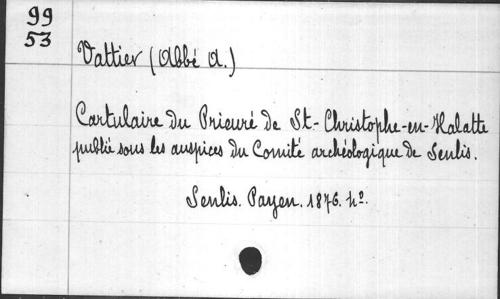 99
53
Vattier (Abbé A.)
Cartulaire du Prieuré de St-Christophe-en-Halatte
publié sous les auspices du Comité archéologique de Senlis.
Senlis. Payen. 1876. 4º.